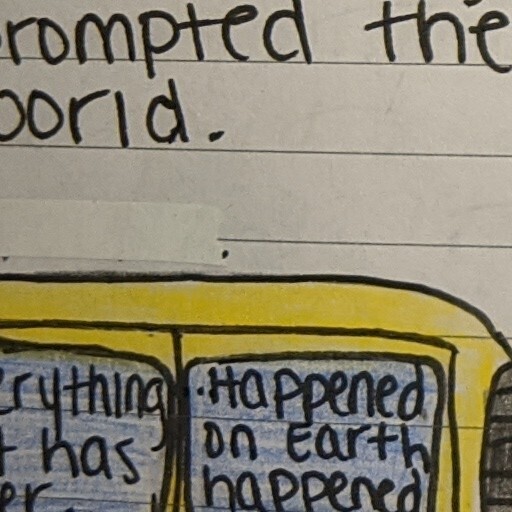 rompted the
orld.
.
erything
t has
er.
·Happened
on Earth
happened